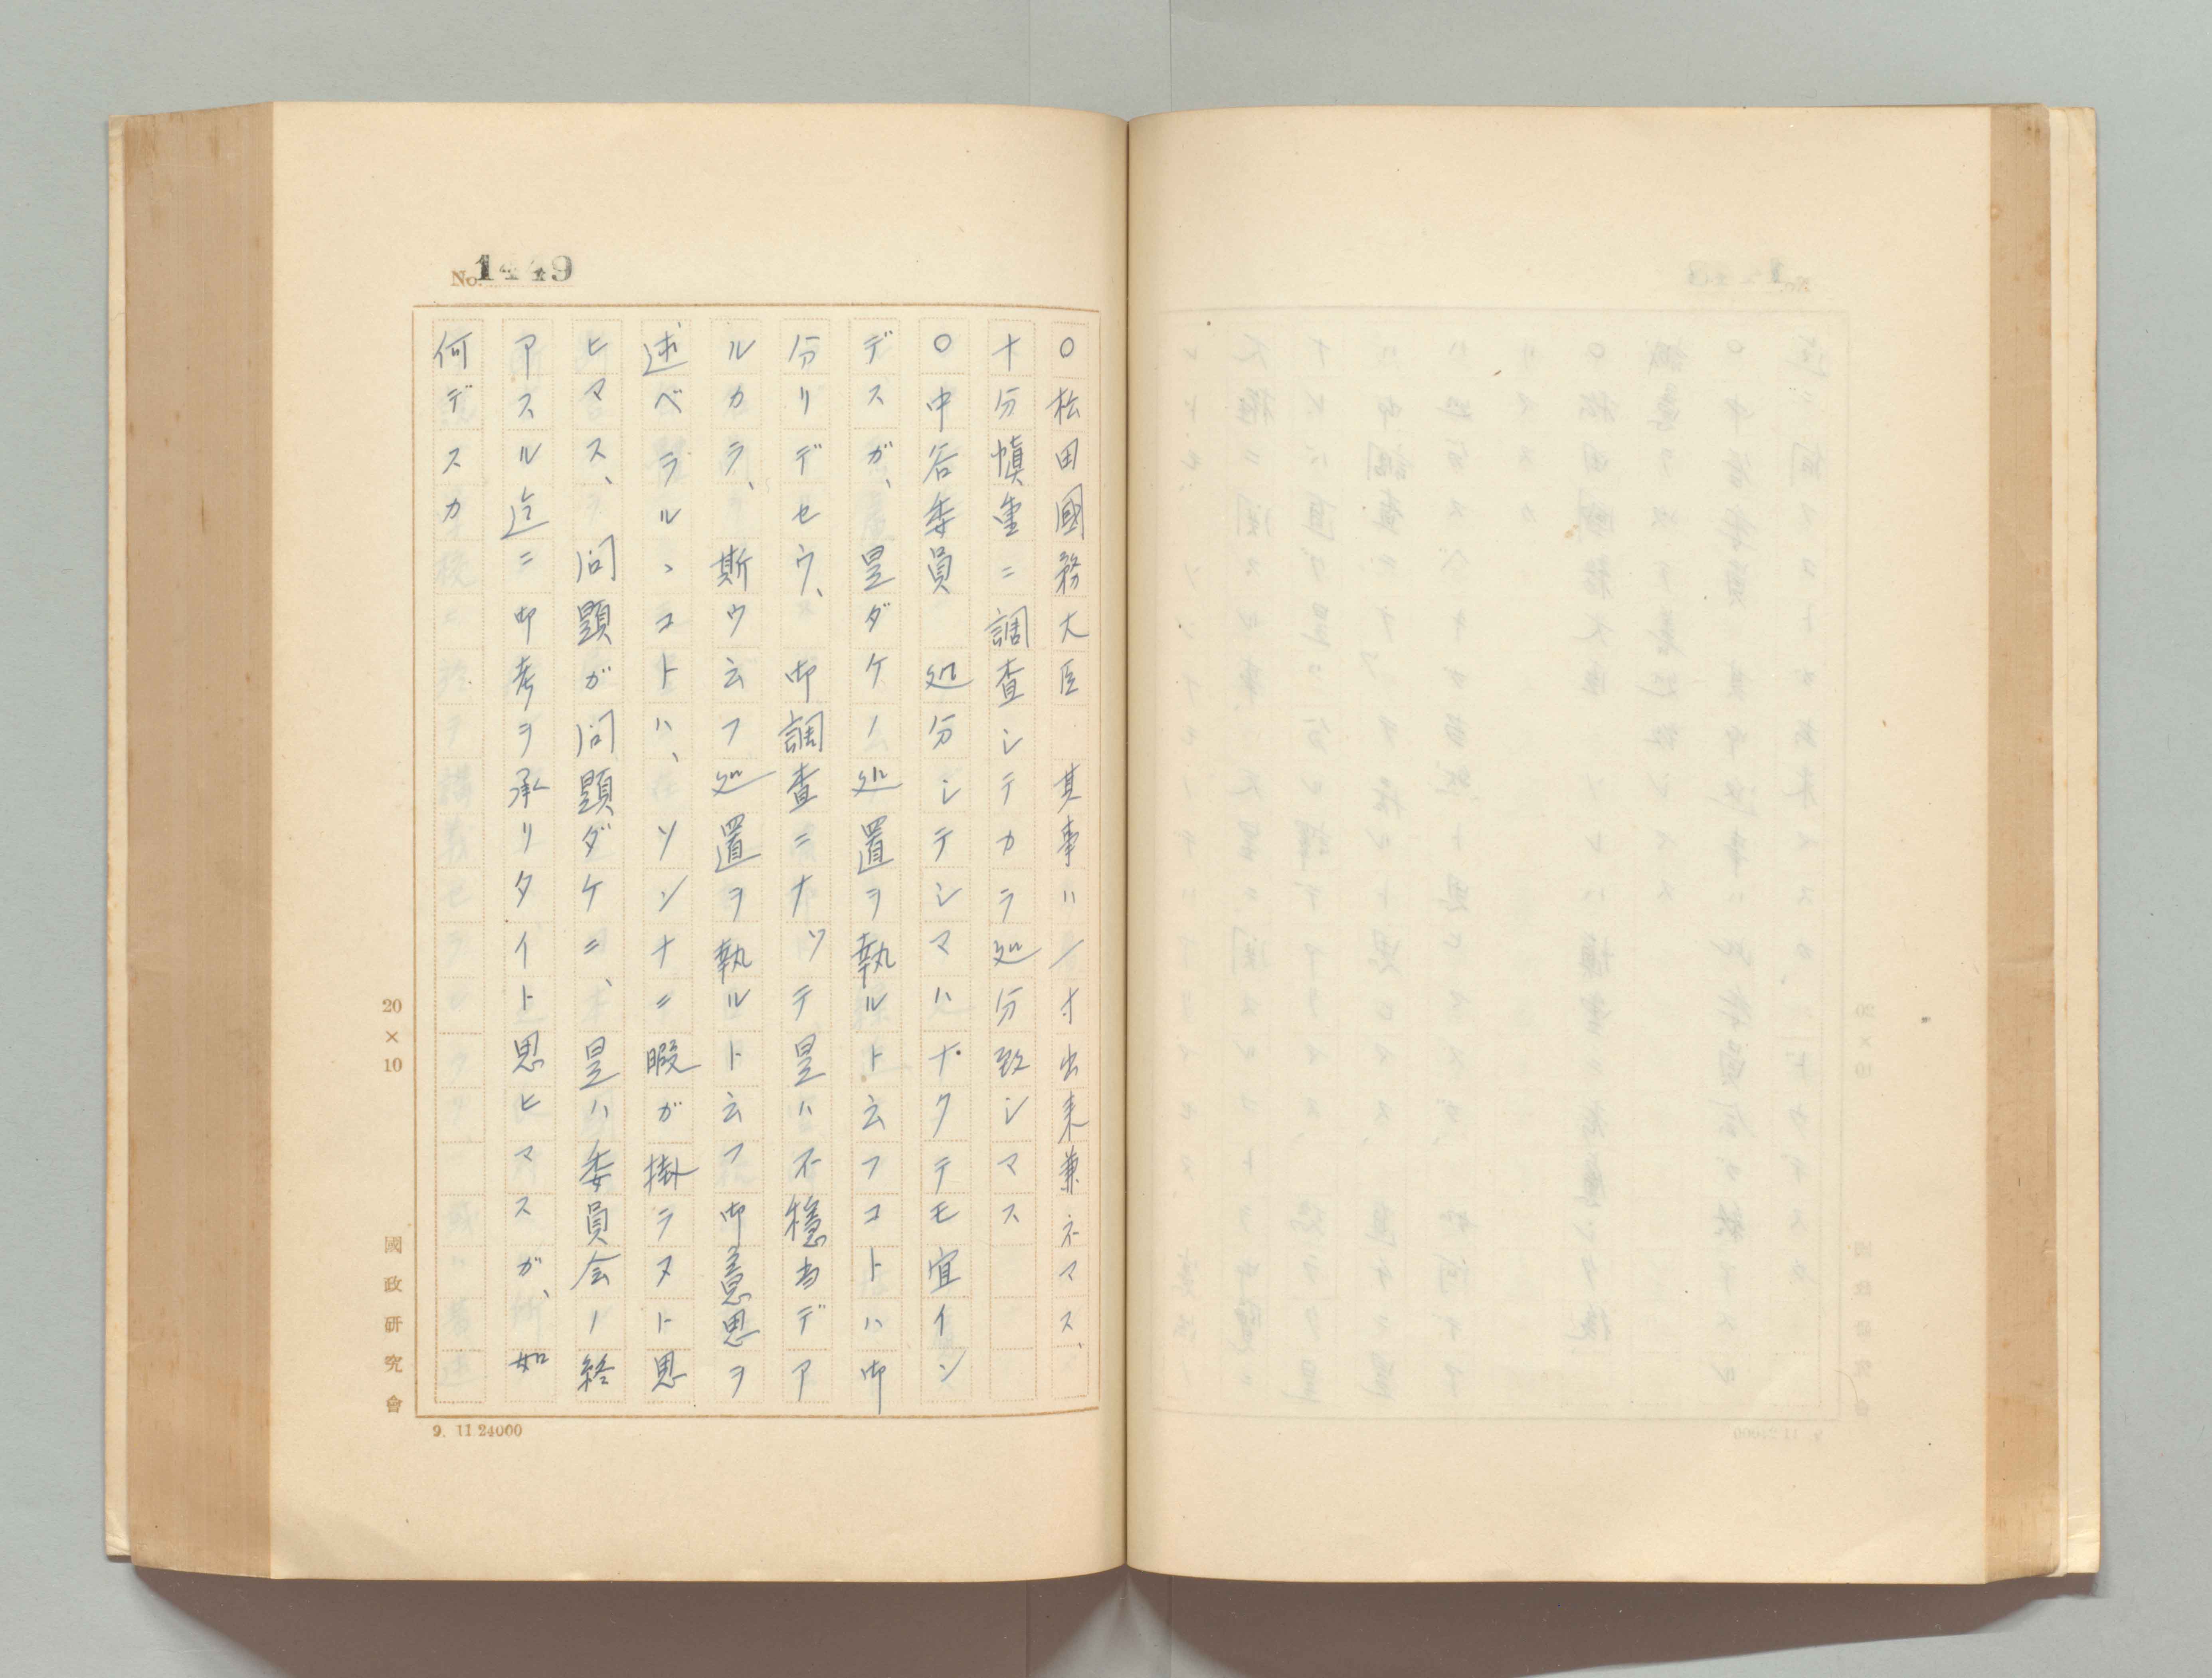 No. 1449
○松田國務大臣　其事ハ一寸出来兼ネマス、
十分慎重ニ調査シテカラ処分致シマス
○中谷委員　処分シテシマハナクテモ宜イン
デスガ、是ダケノ処置ヲ執ルト云フコトハ御
分リデセウ、御調査ニナツテ是ハ不穏当デア
ルカラ、斯ウ云フ処置ヲ執ルト云フ御意思ヲ
述ベラルヽコトハ、ソンナニ暇ガ掛ラヌト思
ヒマス、問題ガ問題ダケニ、是ハ委員会ノ終
アスル迄ニ御考ヲ承リタイト思ヒマスガ、如
何デスカ
20×10
國政研究會
9. 11 24000